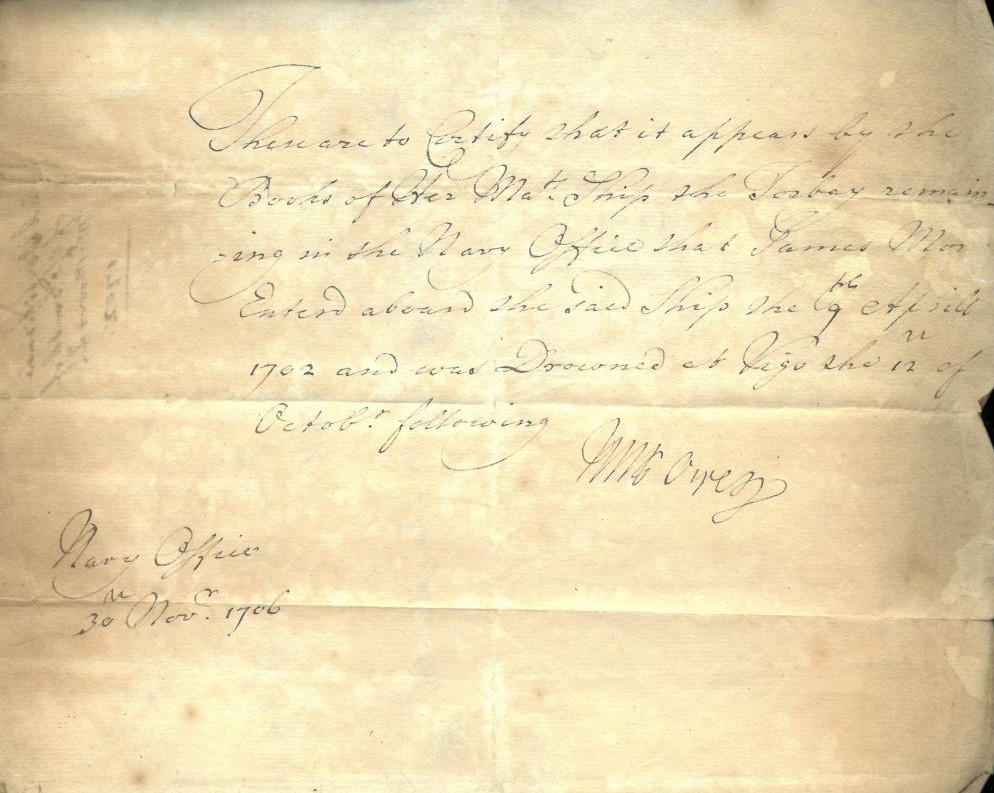 These are to Certify that it appears by the
Books of Her Ma.ts Ship the Torbay remain-
-ing in the Navy Office that James Mor
Enterd aboard the said Ship the 9th Aprill
1702 and was Drowned at Vigo the 12th of
Octob.r following
Owen
Navy Office
30th Nov.r 1706
1702